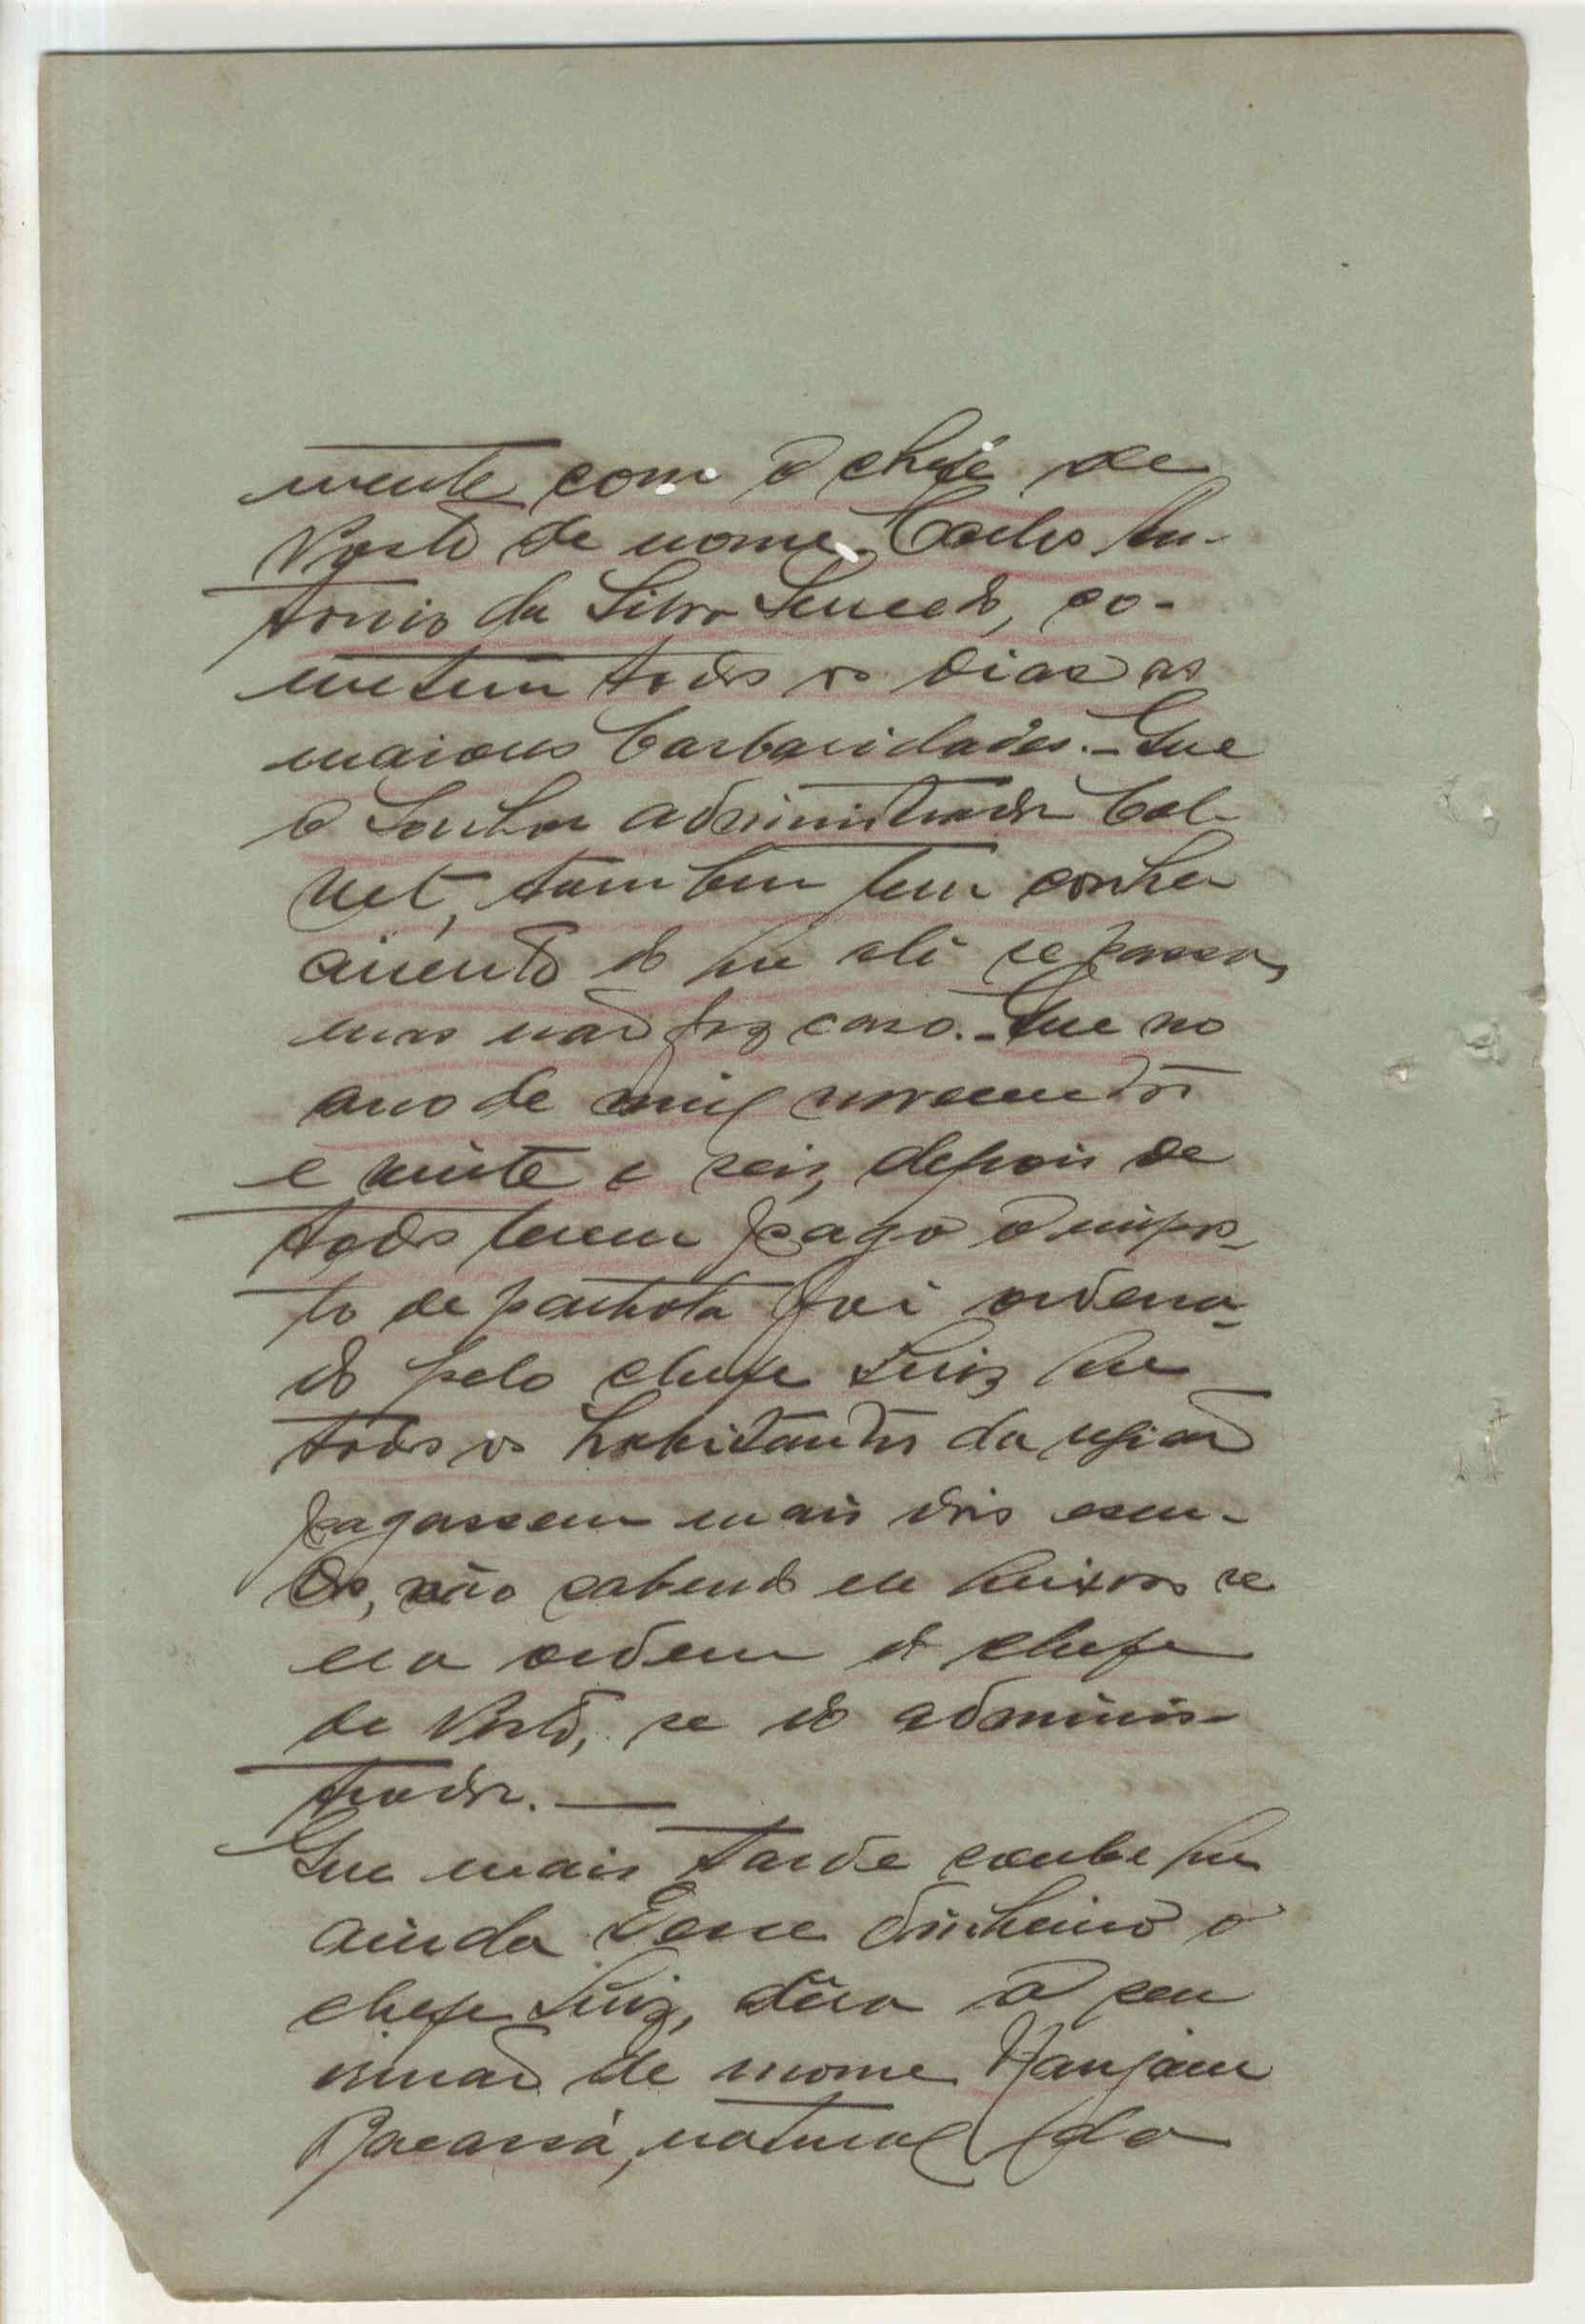 mente com o chefe de
Posto de nome Carlos An-
tonio da Silva, co-
metem todos os dias as
maiores barbaridades. - Que
o Senhor administrador Cal-
vet, tambem tem conhe
cimento do que ali se passa,
mas não faz caso. - Que no
ano de mil novecentos
e vinte e seis, depois de
todos terem pago o impos-
to de palhota foi ordena-
do pelo chefe Luiz que
todos os habitantes da região
pagassem mais dois escu-
dos, não sabendo ele queixoso se
era ordem do chefe
de Posto, se do adminis-
trador. —
Que mais tarde soube que
ainda desse dinheiro o
chefe Luiz, dera a seu
irmão de nome
Bacassá, natural da